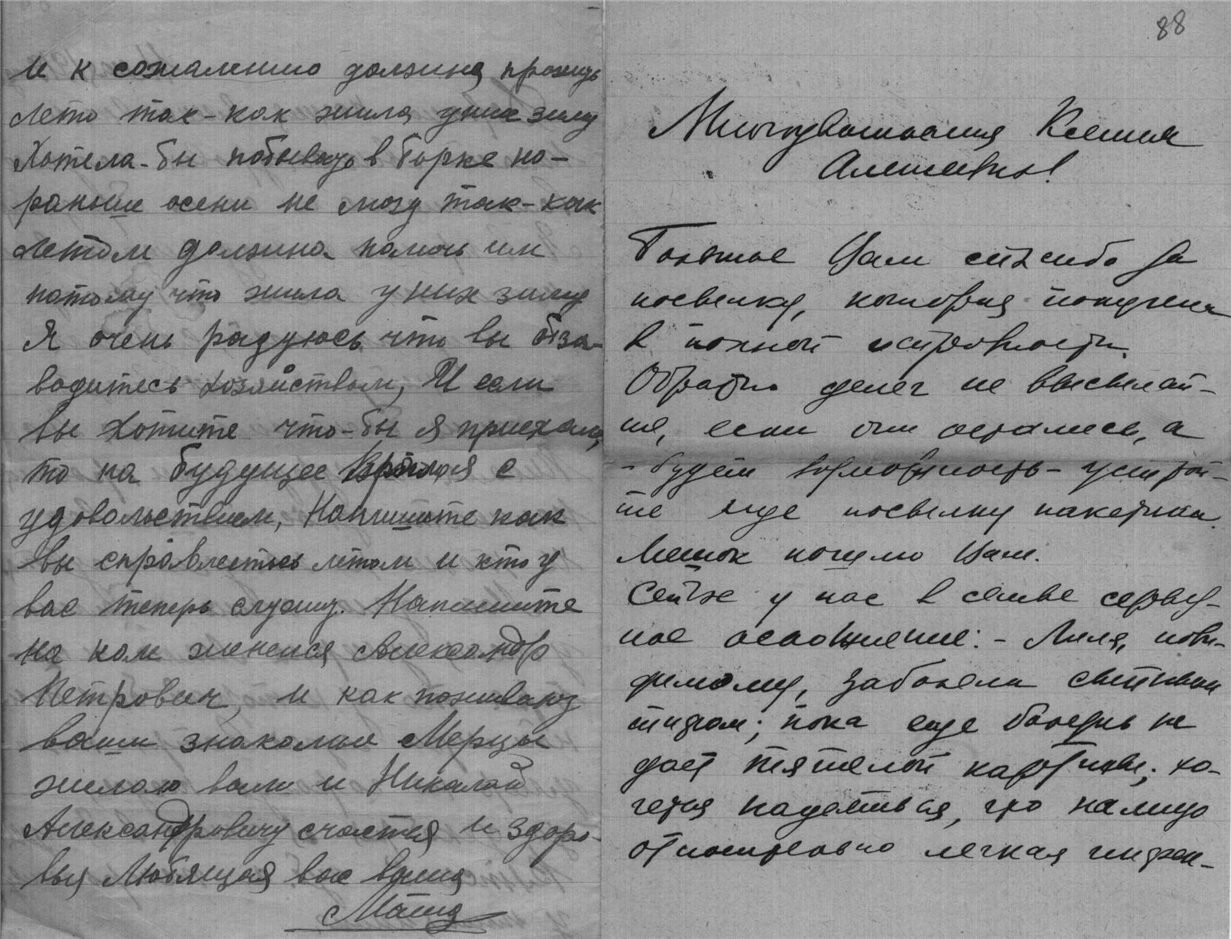 и к сожалению должна прожить
лето так-как жила у них зиму
Хотела-бы побывать в Борке но-
раньше осени не могу так-как
летом должна помочь им
потому что жила у них зиму
Я очень радуюсь что вы обза-
водитесь хозяйством, И если
вы хотите что-бы я приехала,
то на будущее время с
удовольствием, Напишите как
вы справляетесь летом и кто у
вас теперь служит. Напишите
на ком женился Александр
Петрович, и как поживают
ваши знакомые Мерцы
желаю вам и Николай
Александровичу счастья и здоро-
вья Любящая вас ваша
Маша
88
Многоуважаемая Ксения
Алексеевна!
Большое Вам спасибо за
посылку, которая получена
в полной исправности.
Обратно денег не высылай-
те, если они остались, а
- будет возможность - устрой-
те еще посылку
Мешок пошлю Вам.
Сейчас у нас в семье серьез-
ное осложнение: - Лиля, пови-
димому, заболела сыпным
тифом; пока еще болезнь не
дает тяжелой картины; хо-
чется надеяться, что налицо
относительно легкая инфек-